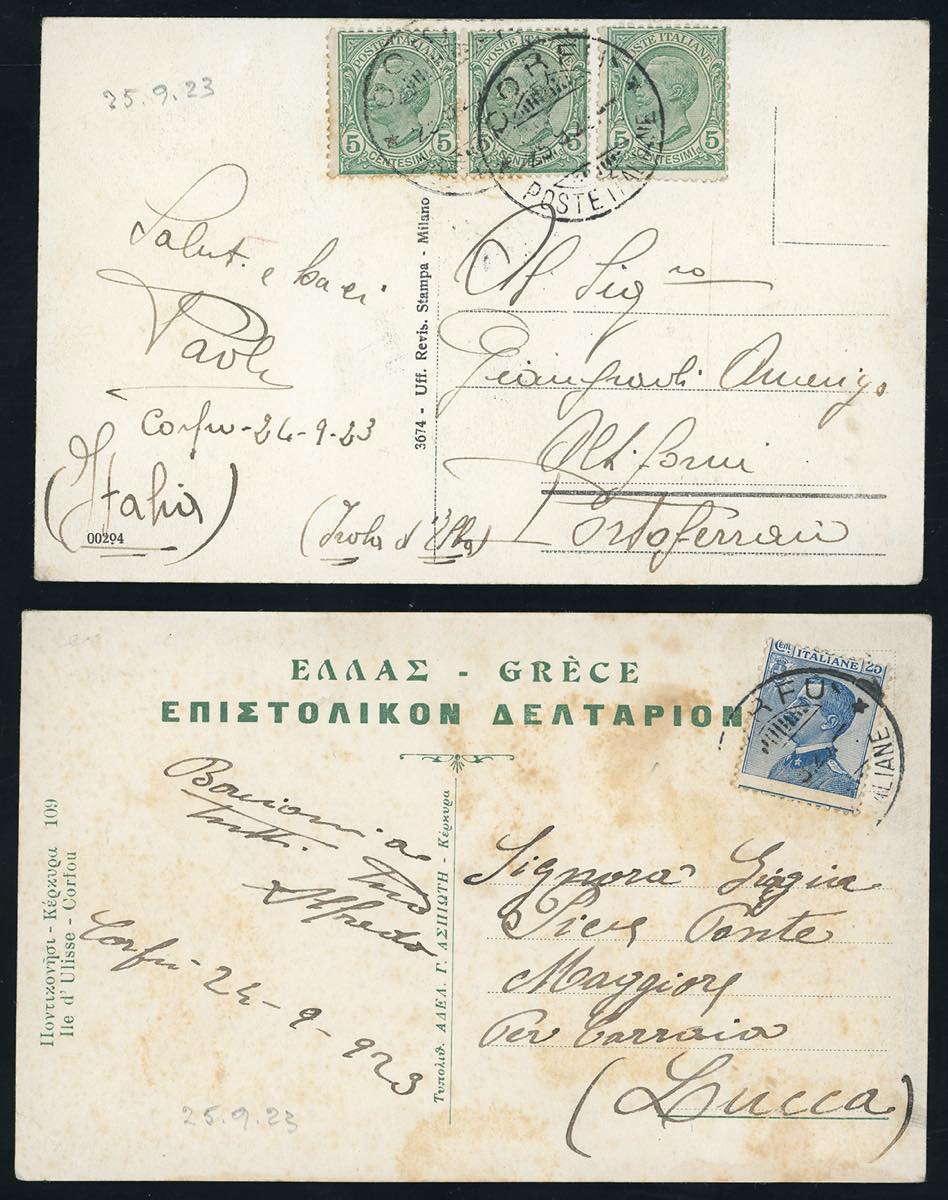 25.9.23
POSTE ITALIANE
5 5
CENTESIMI
POSTE ITALIANE
5
CENTESIMI
POSTE ITALIANE
5 5
CENTESIMI
CORFU
POSTE ITALIANE
Saluti e baci
Paolo
Corfu - 24-9-23
(Italia)
00204
3674 - Uff. Revis. Stampa - Milano
Al Sig.ro
Amerigo
Alti forni
Portoferraio
(Isola d'Elba)
ΕΛΛΑΣ - GRÈCE
ΕΠΙΣΤΟΛΙΚΟΝ ΔΕΛΤΑΡΙΟΝ
Cent. ITALIANE 25
RFU
ALIANE
Ποντικονῆσι - Κέρκυρα 109
Ile d' Ulisse - Corfou
Τυπολιθ. ΑΔΕΛ. Γ. ΑΣΠΙΩΤΗ - Κέρκυρα
Bacioni a
tutti. Tuo
Alfredo
Corfu - 24-9-923
25.9.23
Signora Gigia
Pieri Ponte
Maggiore
Per Carraia
(Lucca)